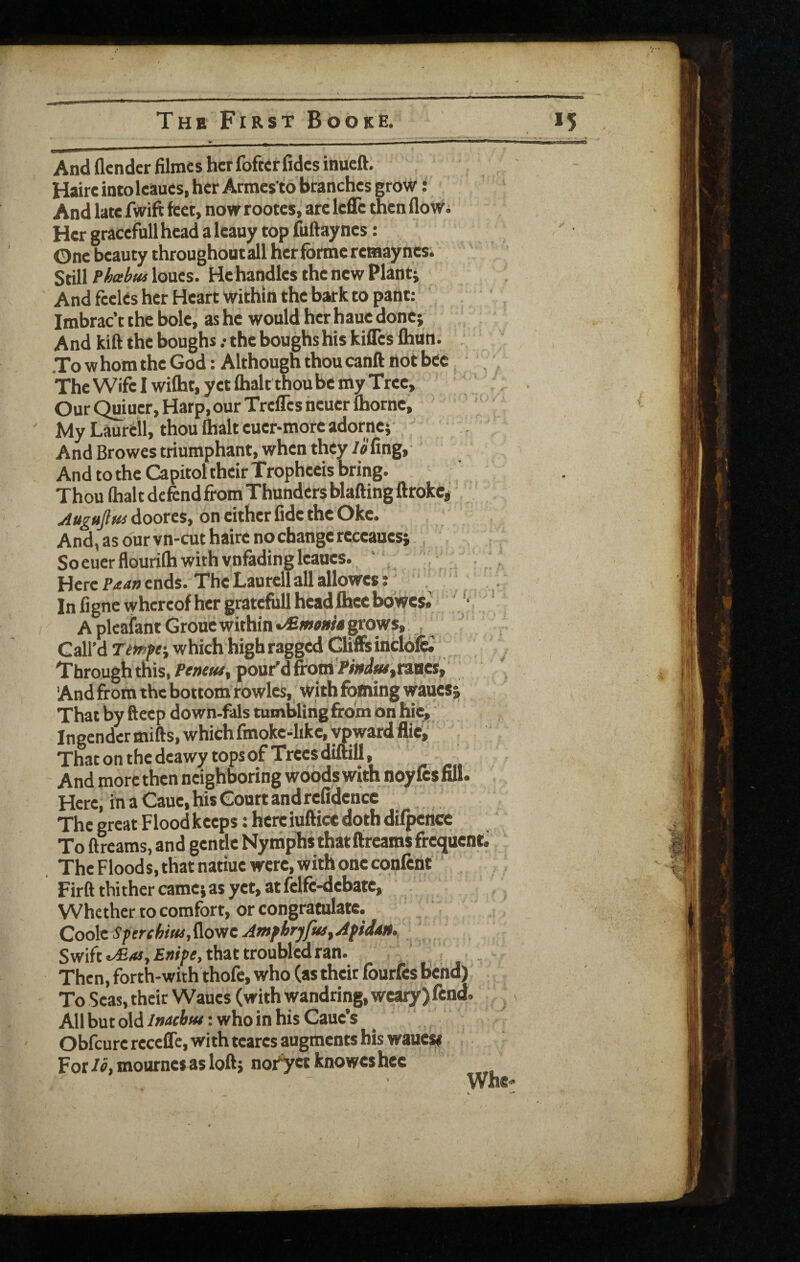 The First Booke. 15
And ſlender filmes her ſofter ſides inueſt.
Haire into leaues, her Armes to branches grow:
And late ſwift feet, now rootes, are leſſe then ſlow.
Her gracefull head a leauy top ſuſtaynes:
One beauty throughout all her forme remaynes.
Still Phœbus loues. He handles the new Plant;
And feeles her Heart within the bark to pant:
Imbrac't the bole, as he would her haue done;
And kiſt the boughs: the boughs his kiſſes ſhun.
To whom the God: Although thou canſt not bee
The Wife I wiſht, yet ſhalt thou be my Tree,
Our Quiuer, Harp, our Treſſes neuer ſhorne,
My Laurell, thou ſhalt euer-more adorne;
And Browes triumphant, when they Iô ſing,
And to the Capitol their Tropheeis bring.
Thou ſhalt defend from Thunders blaſting ſtroke,
Auguſtus doores, on either ſide the Oke.
And, as our vn-cut haire no change receaues;
So euer flouriſh with vnfading leaues.
Here Pæan ends. The Laurell all allowes:
In ſigne whereof her gratefull head ſhee bowes.
A pleaſant Groue within Æmonia grows,
Call'd Tempe; which high ragged Cliffs incloſe.
Through this, Peneus, pour'd from Pindus, raues,
And from the bottom rowles, with foming waues;
That by ſteep down-fals tumbling from on hie,
Ingender miſts, which ſmoke-like, vpward flie,
That on the deawy tops of Trees diſtill,
And more then neighboring woods with noyſes fill.
Here, in a Caue, his Court and reſidence
The great Flood keeps: here iuſtice doth diſpence
To ſtreams, and gentle Nymphs that ſtreams frequent.
The Floods, that natiue were, with one conſent
Firſt thither came; as yet, at ſelfe-debate,
Whether to comfort, or congratulate.
Coole Sperchius, ſlowe Amphryſus, Apidan.
Swift Æas, Enipe, that troubled ran.
Then, forth-with thoſe, who (as their ſourſes bend)
To Seas, their Waues (with wandring, weary) ſend.
All but old Inachus: who in his Caue's
Obſcure receſſe, with teares augments his waues:
For Iô, mournes as loſt; nor yet knowes hee
Whe-